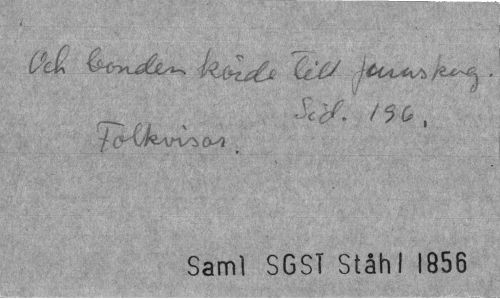 Och bonden körde till furuskog.
Sid. 196.
Folkvisor.
Saml SGST Ståhl 1856